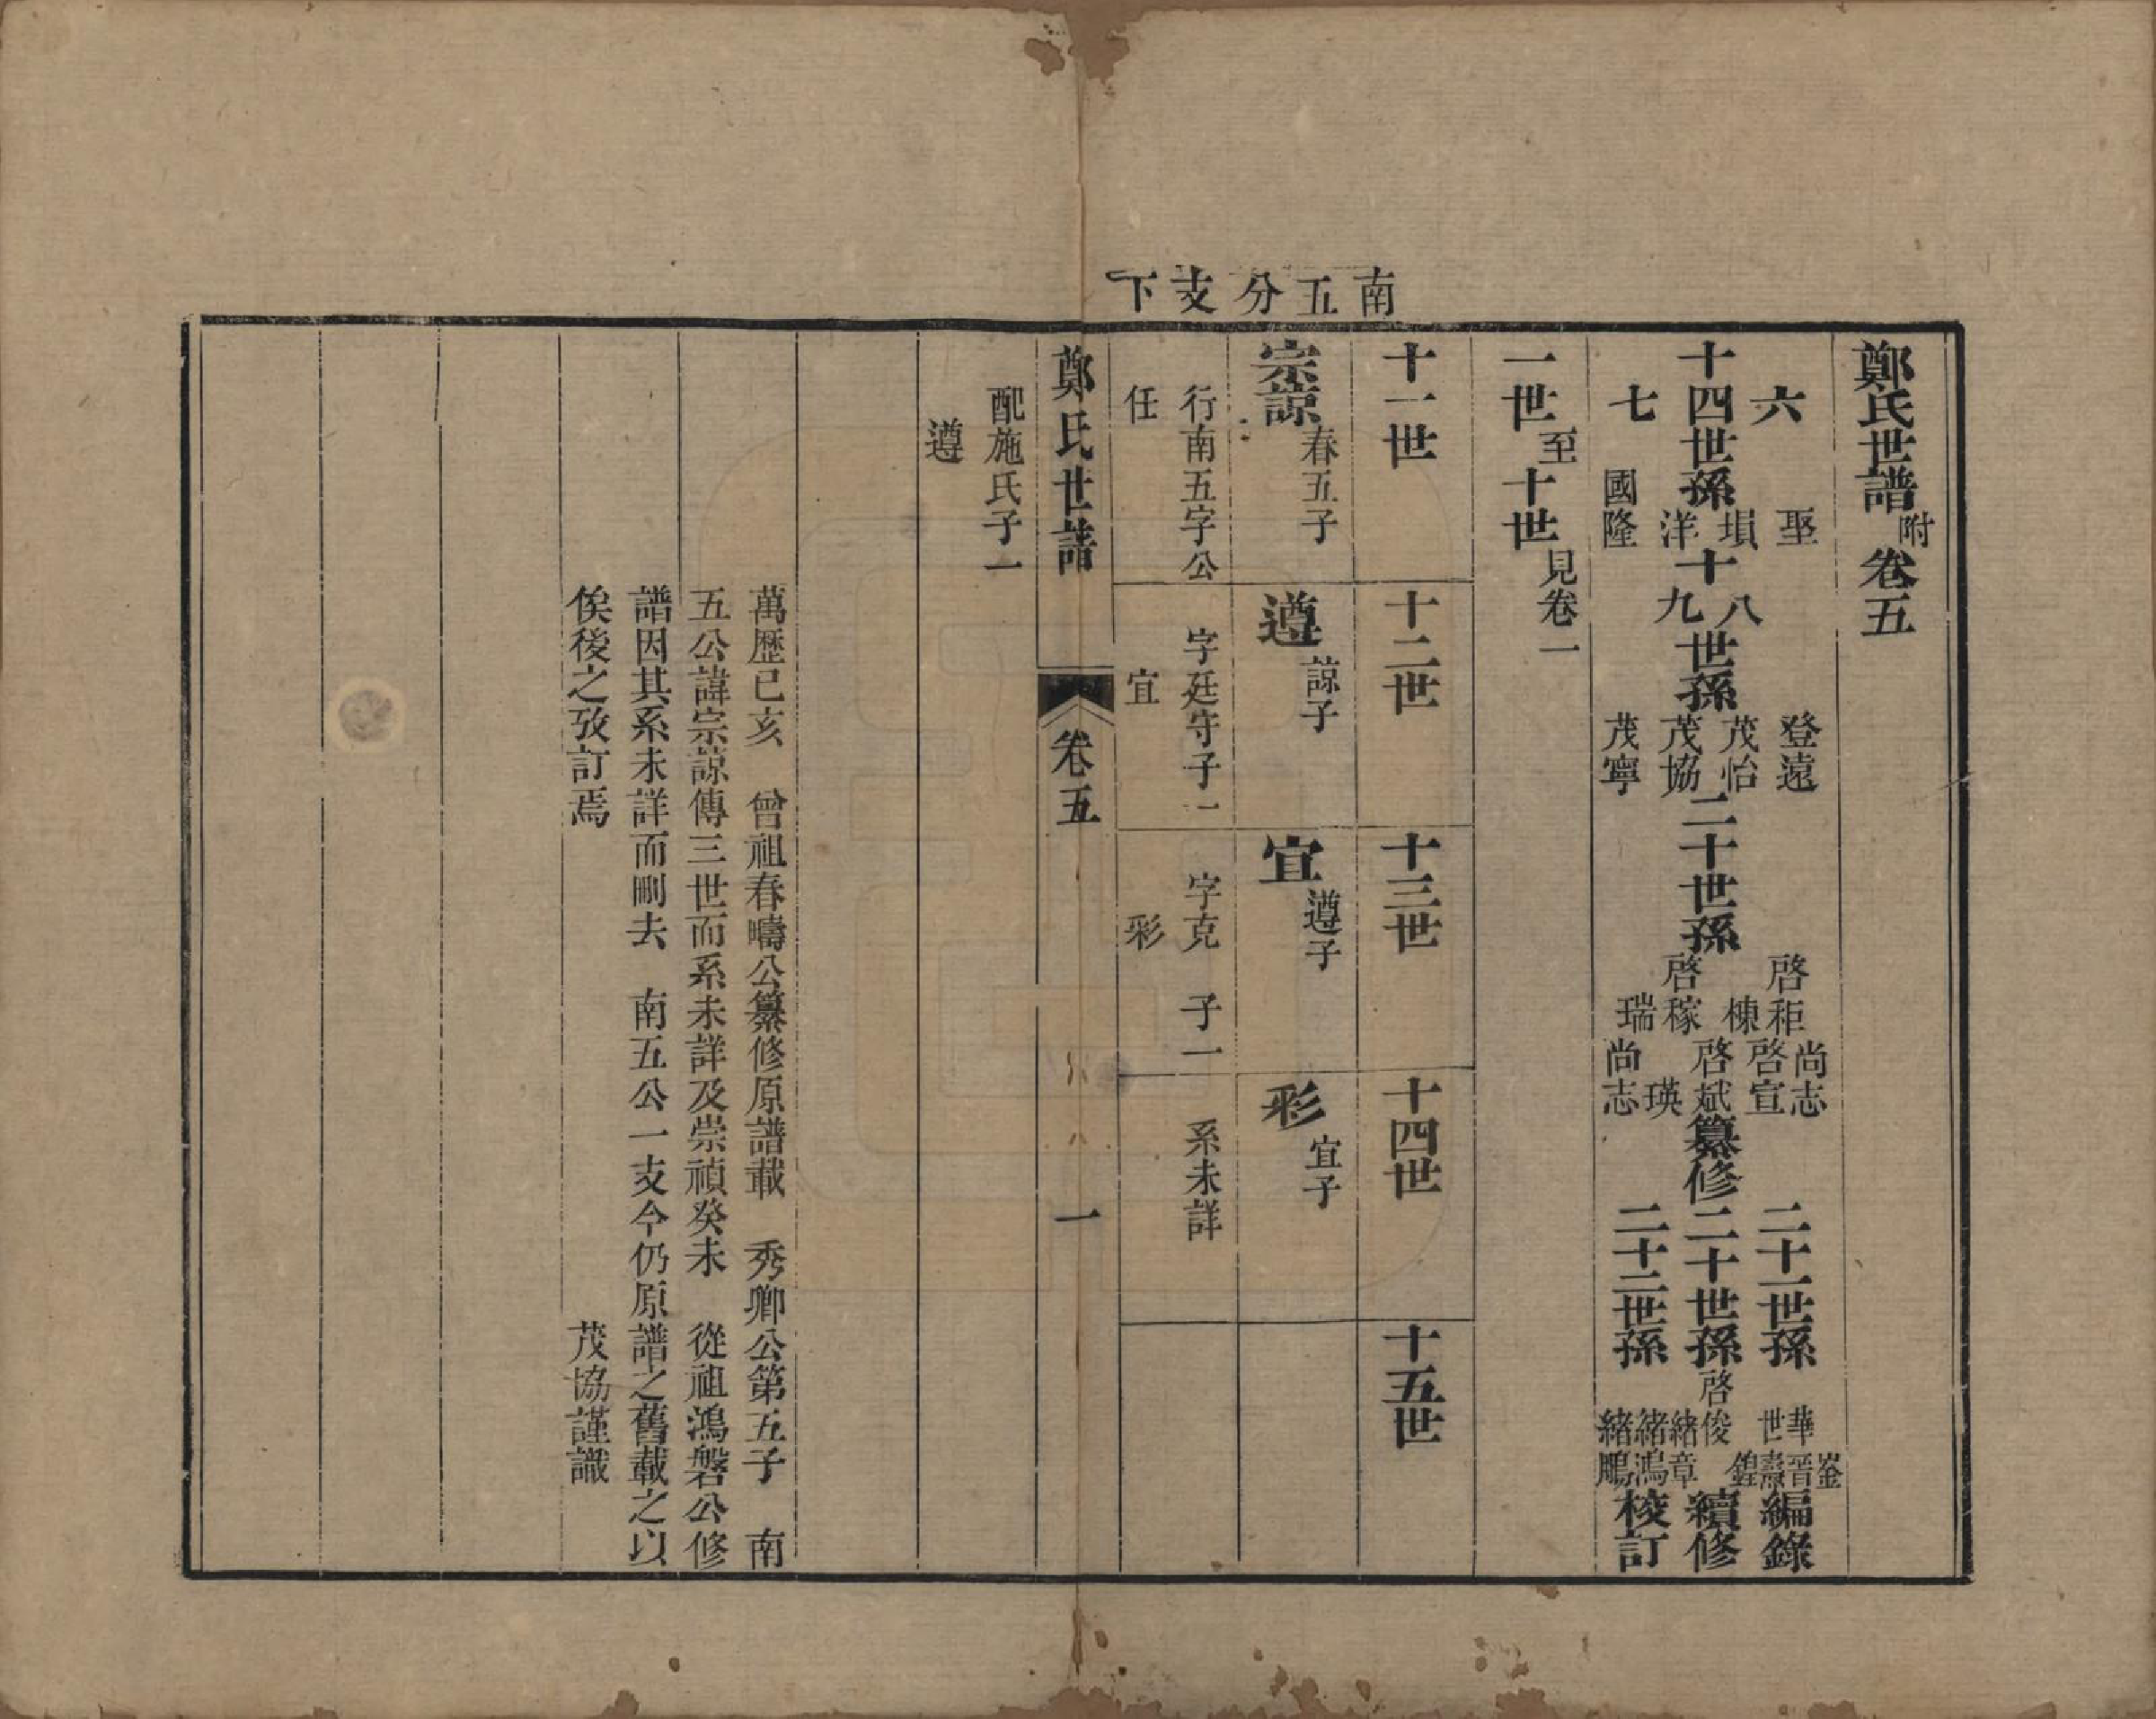 南五分支下
鄭氏世譜附卷五
六
十四世孫
七
聖
塤
洋
國隆
十八
九
世孫
登遠
茂怡
茂協
茂寧
二十世孫
啓秬
棟
啓稼
瑞
尚志
啓宣
啓斌
瑛
尚志
纂修
二十一世孫
華
世
崟
晋
燾
鍠
編錄
二十世孫
啓俊
續修
二十二世孫
緒章
緒鴻
緒鵬
校訂
一世至十世見卷一
十一世
十二世
十三世
十四世
十五世
宗諒春五子
行南五字公
任
配施氏子一
遵
遵諒子
字廷守子一
宜
宜遵子
字克　子一
彩
彩宜子
系未詳
鄭氏世譜　卷五　一
萬歷已亥　曾祖春疇公纂修原譜載　秀卿公第五子　南
五公諱宗諒傳三世而系未詳及崇禎癸未　從祖鴻磐公修
譜因其系未詳而刪去　南五公一支今仍原譜之舊載之以
俟後之攷訂焉　茂協謹識